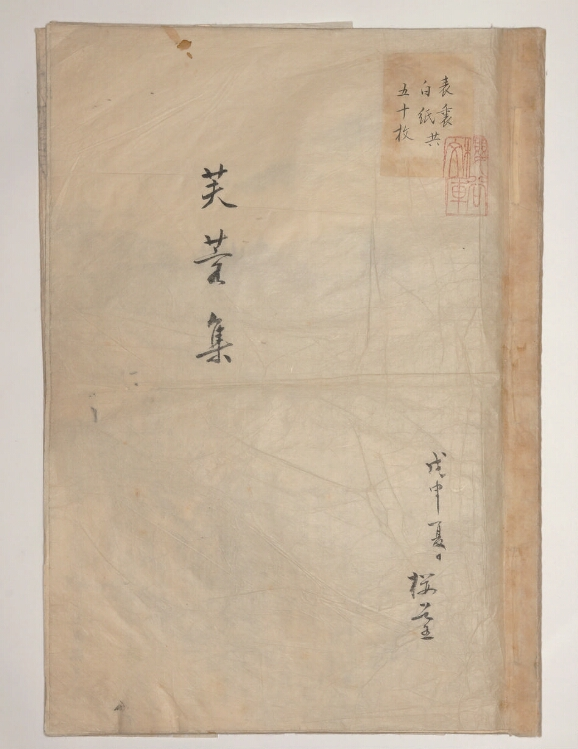 表裏
白紙共
五十枚
芙蓉集
戊申夏日